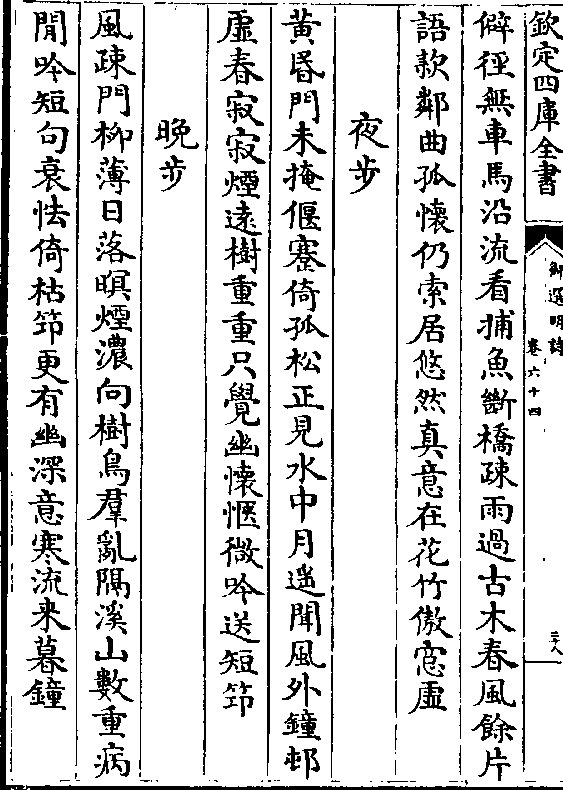 欽定四庫全書
御選明詩
卷六十四
三十八
僻徑無車馬沿流看捕魚斷橋疎雨過古木春風餘片
語款鄰曲孤懷仍索居悠然真意在花竹傲窓虛
夜步
黄昏門未掩偃蹇倚孤松正見水中月遥聞風外鐘邨
虛春寂寂煙遠樹重重只覺幽懷愜微吟送短筇
晩步
風疎門栁薄日落暝煙濃向樹鳥羣亂隔溪山數重病
閒吟短句衰怯倚枯筇更有幽深意寒流来暮鐘